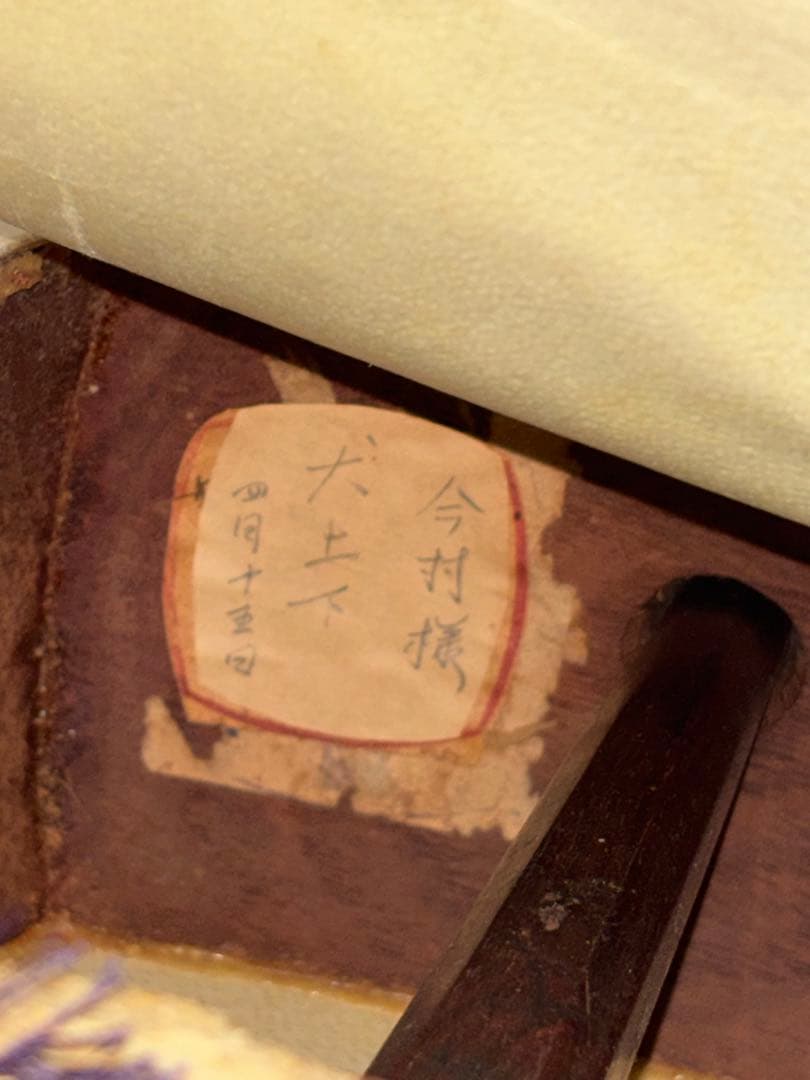 今村様
犬上下
四月十五日